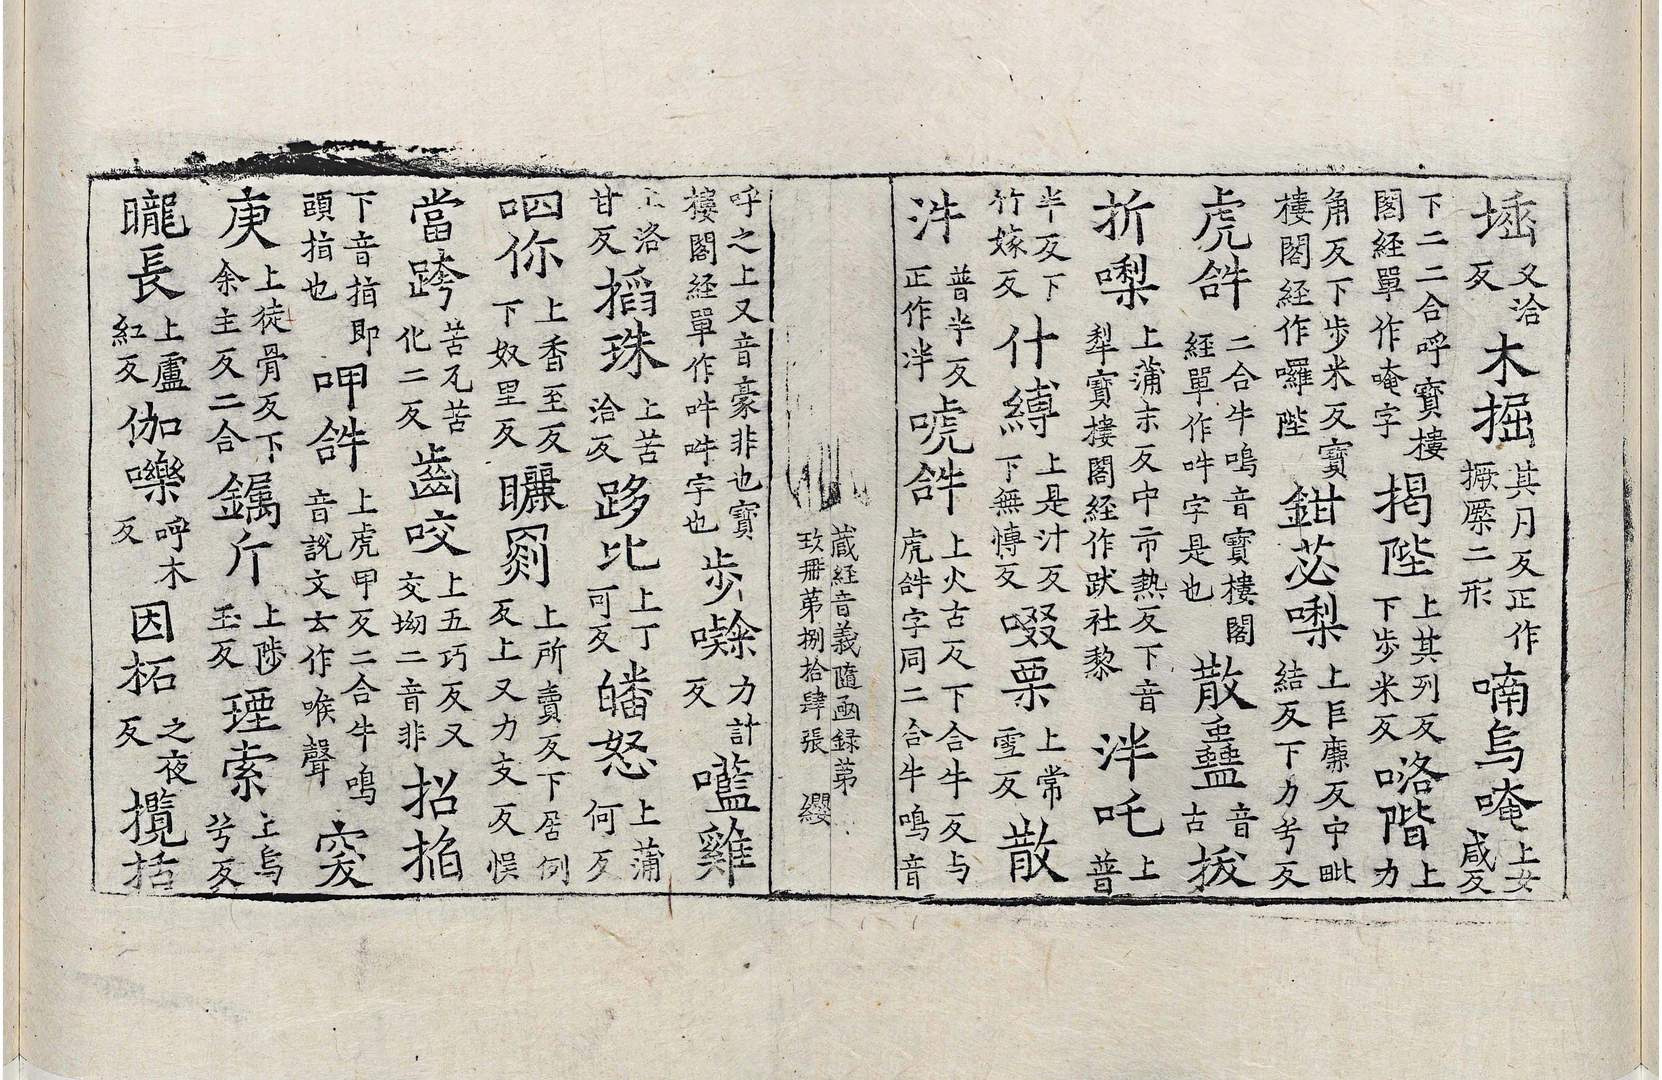 埵又洽反木掘其月反正作撅橜二形喃烏唵上女咸反
下二二合呼寶樓閣經單作唵字揭陛上其列反下步米反咯階上力
角反下步米反寶樓閣經作囉陛鉗苾㗚上巨廉反中毗結反下力兮反
虎𤙖二合牛鳴音寶樓閣經單作吽字是也散蠱音古拔
折㗚上蒲末反中市熱反下音犁寶樓閣經作跋社黎泮吒上普
半反下竹嫁反什縛上是汁反下無慱反啜栗上常雪反散
泮普半反正作泮唬𤙖上火古反下合牛反与虎𤙖字同二合牛鳴音
藏經音義隨函録第
玖冊第捌拾肆張 纓
呼之上又音豪非也寶樓閣經單作吽吽字也步㘑力計反㘕雞
上洛甘反搯珠上苦洽反跢比上丁可反皤怒上蒲何反
呬你上香至反下奴里反矖罽上所賣反下居例反上又力支反悮
當跨苦瓦苦化二反齒咬上五巧反又交坳二音非招掐
下音指即頭指也呷𤙖上虎甲反二合牛鳴音說文云作喉聲突
庚上徒骨反下余主反二合钃斤上陟玉反瑿索上烏兮反
矓長上盧紅反伽嚛呼木反因柘之夜反攬括